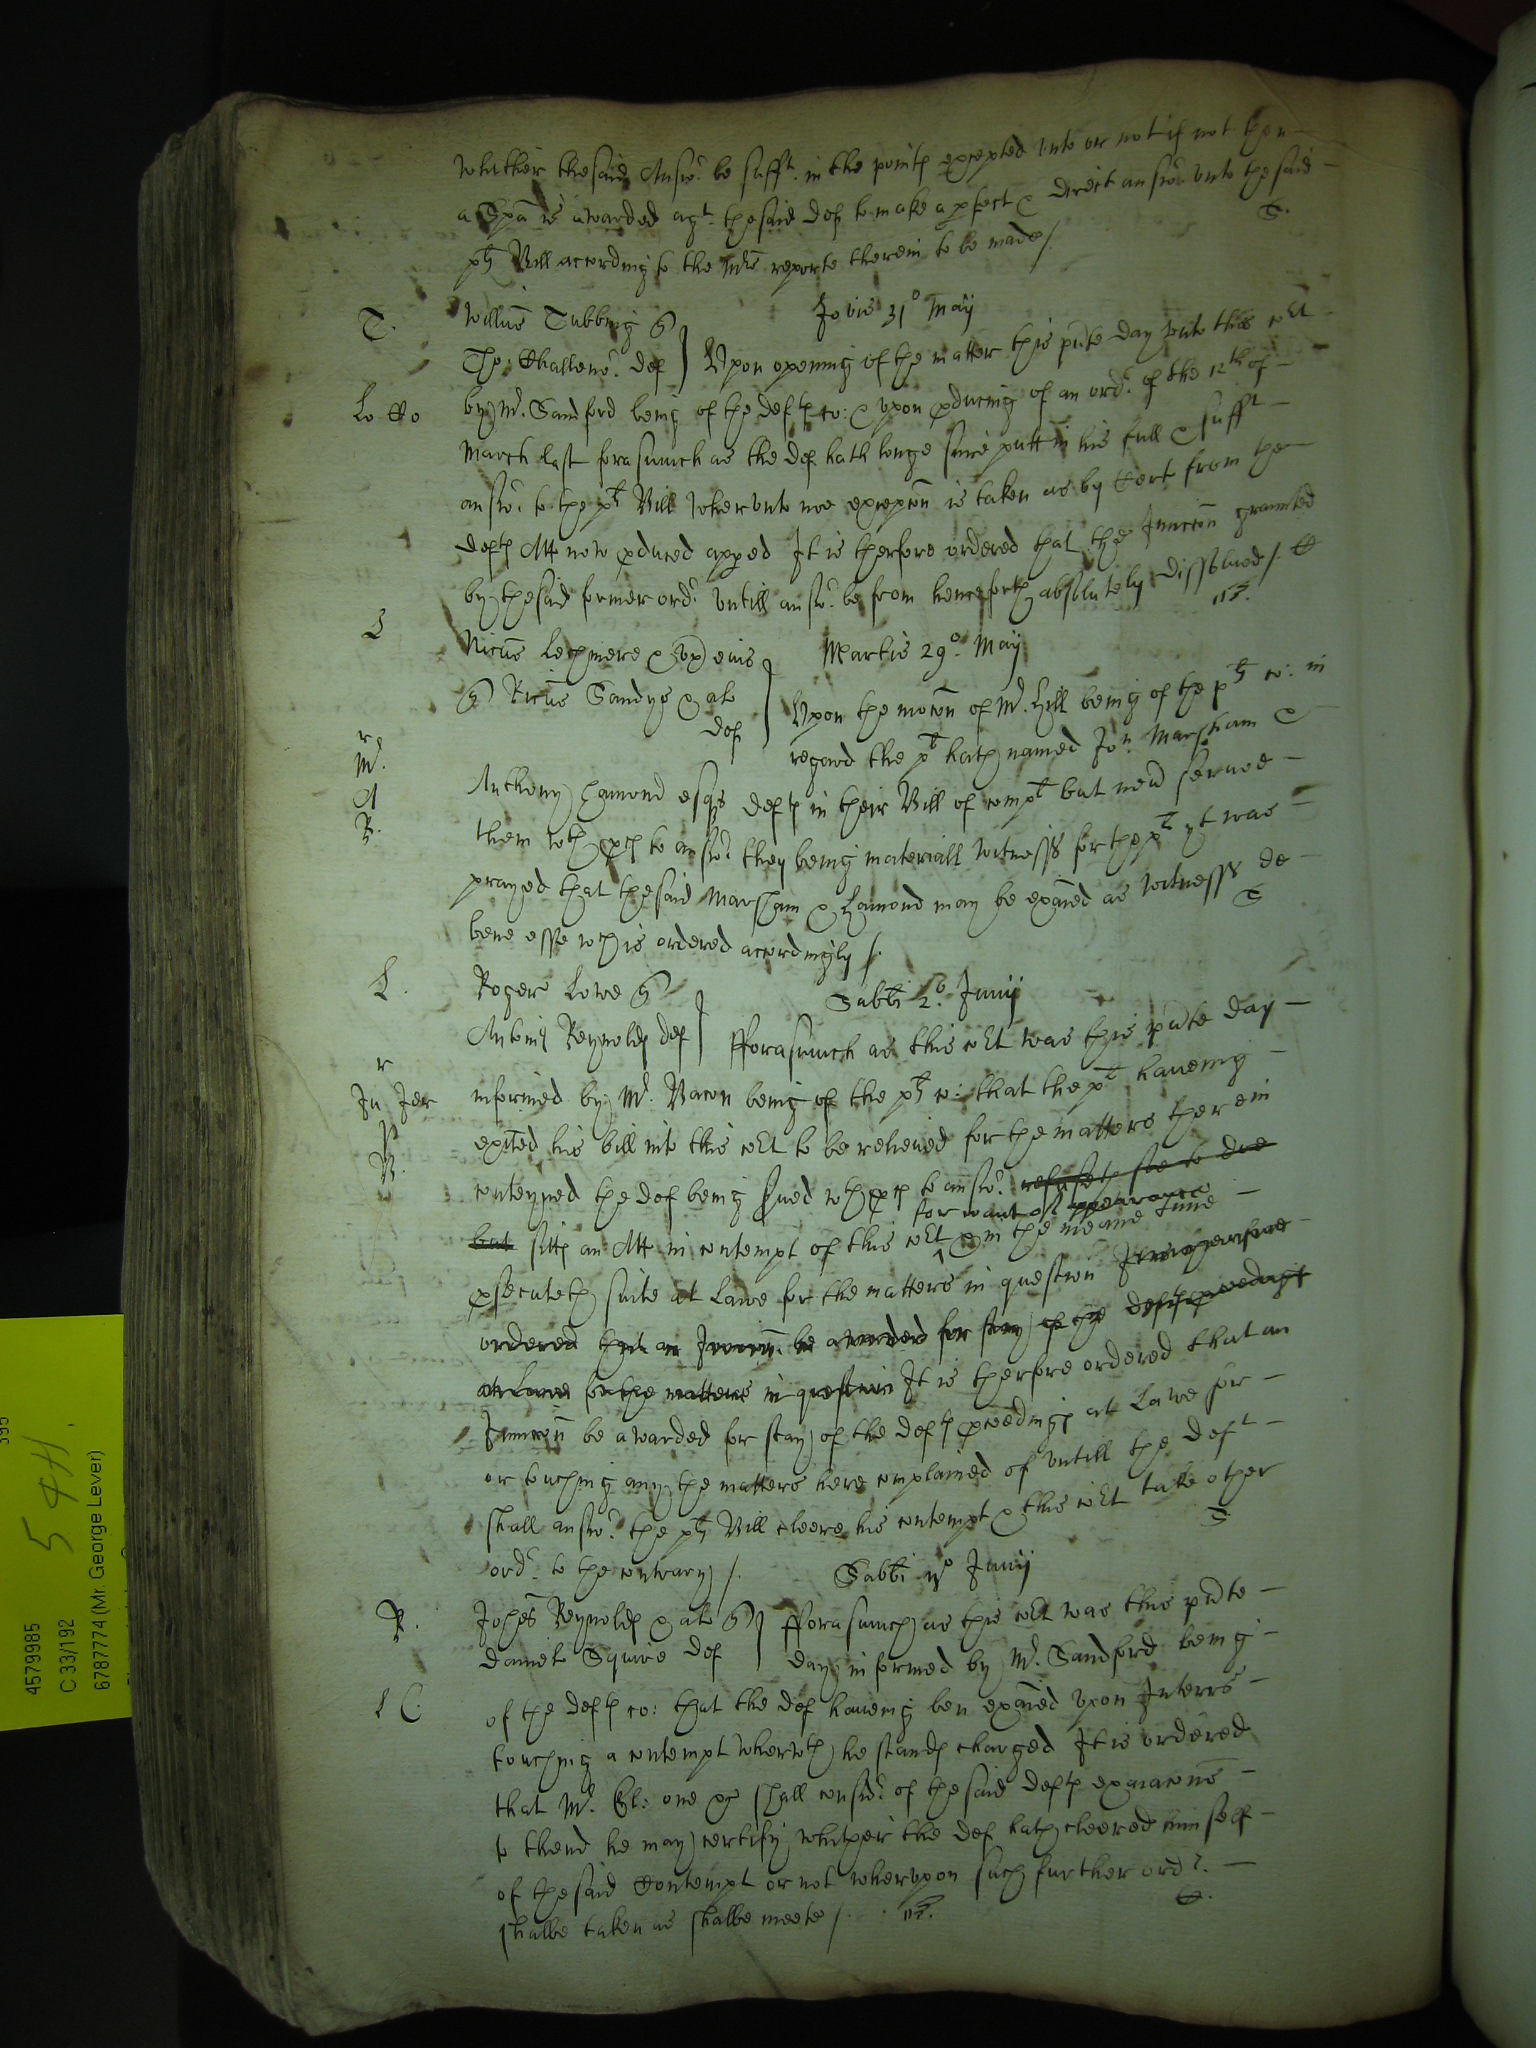 whither the said Answ:r be suff:t in the point exepted unto or not if not then
a Spã is awarded ag:t the said def to make a pfect & direct answ:r unto the said
plt Bill according to the Mrs reporte therein to be made/. S.
T. Willms Tubbing Jovis 31o Maij
Tho: def } Upon opening of the matter this pñte day unto this cort
by Mr. Sandford being of the deft co: & upon pducing of an ord:r of the 12th of
March last forasmuch as the def hath longe since putt in his full & sufft
answ:r to the plt Bill wherunto noe excepcõn is taken as by Cert from the
deft Att now pduced apped It is therfore ordered that the Iniuncõn graunted
by the said former ord:r untill answ:r be from henceforth absolutely dissolved/.
L Nichus Lechmere & ux eius Martis 29o Maij
Ricus Sandys & al Upon the mocõn of Mr. Hill being of the plt co: in
def } regard the plt hath named Jon Marsham &
Mr. Anthony Hamond esqrs deft in their Bill of complt but never served
A
R. them wth pces to answ:r they being materiall witnesses for the plt yt was
prayed that the said Marsham & Hamond may be exãied as witnesses de
bene esse wch is ordered accordingly/.
L. Roger Lowe Sabbti 2o Junij
Antoniũ Reynold def } Fforasmuch as this cort was this pñte day
informed by Mr. Bacon being of the plt co: that the plt haveing
exited his bill into this cort to be releived for the matters therein
conteyned the def being sued wth pces to answ:r refuseth soe to doe
for want of appearance
but sitts an Att in contempt of this cort & in the meane time
psecuteth suite at Lawe for the matters in question It is therefore
ordered that an Iniuncõn be awarded for stay of the deft pceedings
at Lawe for the matters in question It is therfore ordered that an
Iniuncõn be awarded for stay of the deft pceedings at Lawe for
or touching any the matters here complained of untill the deft
shall answ:r the plt Bill cleere his contempt & this cort take other
ord:r to the contrary/.
Sabbti Junij
R. Johes Reynold & al } Fforasmuch as this cort was this pñte
Daniel Squire def } day informed by Mr. Sandford being
of the deft co: that the def haveing ben exãied upon Interrs
touching a contempt wherwth he stands charged It is ordered
that Mr. one &c shall consid:r of the said deft exaiacõns
to thend he may certify whither the def hath cleered himself
of the said Contempt or not wherupon such further ord:r
shalbe taken as shalbe meete/.
4579985
C 33/192
6787774 (Mr. George Lever)